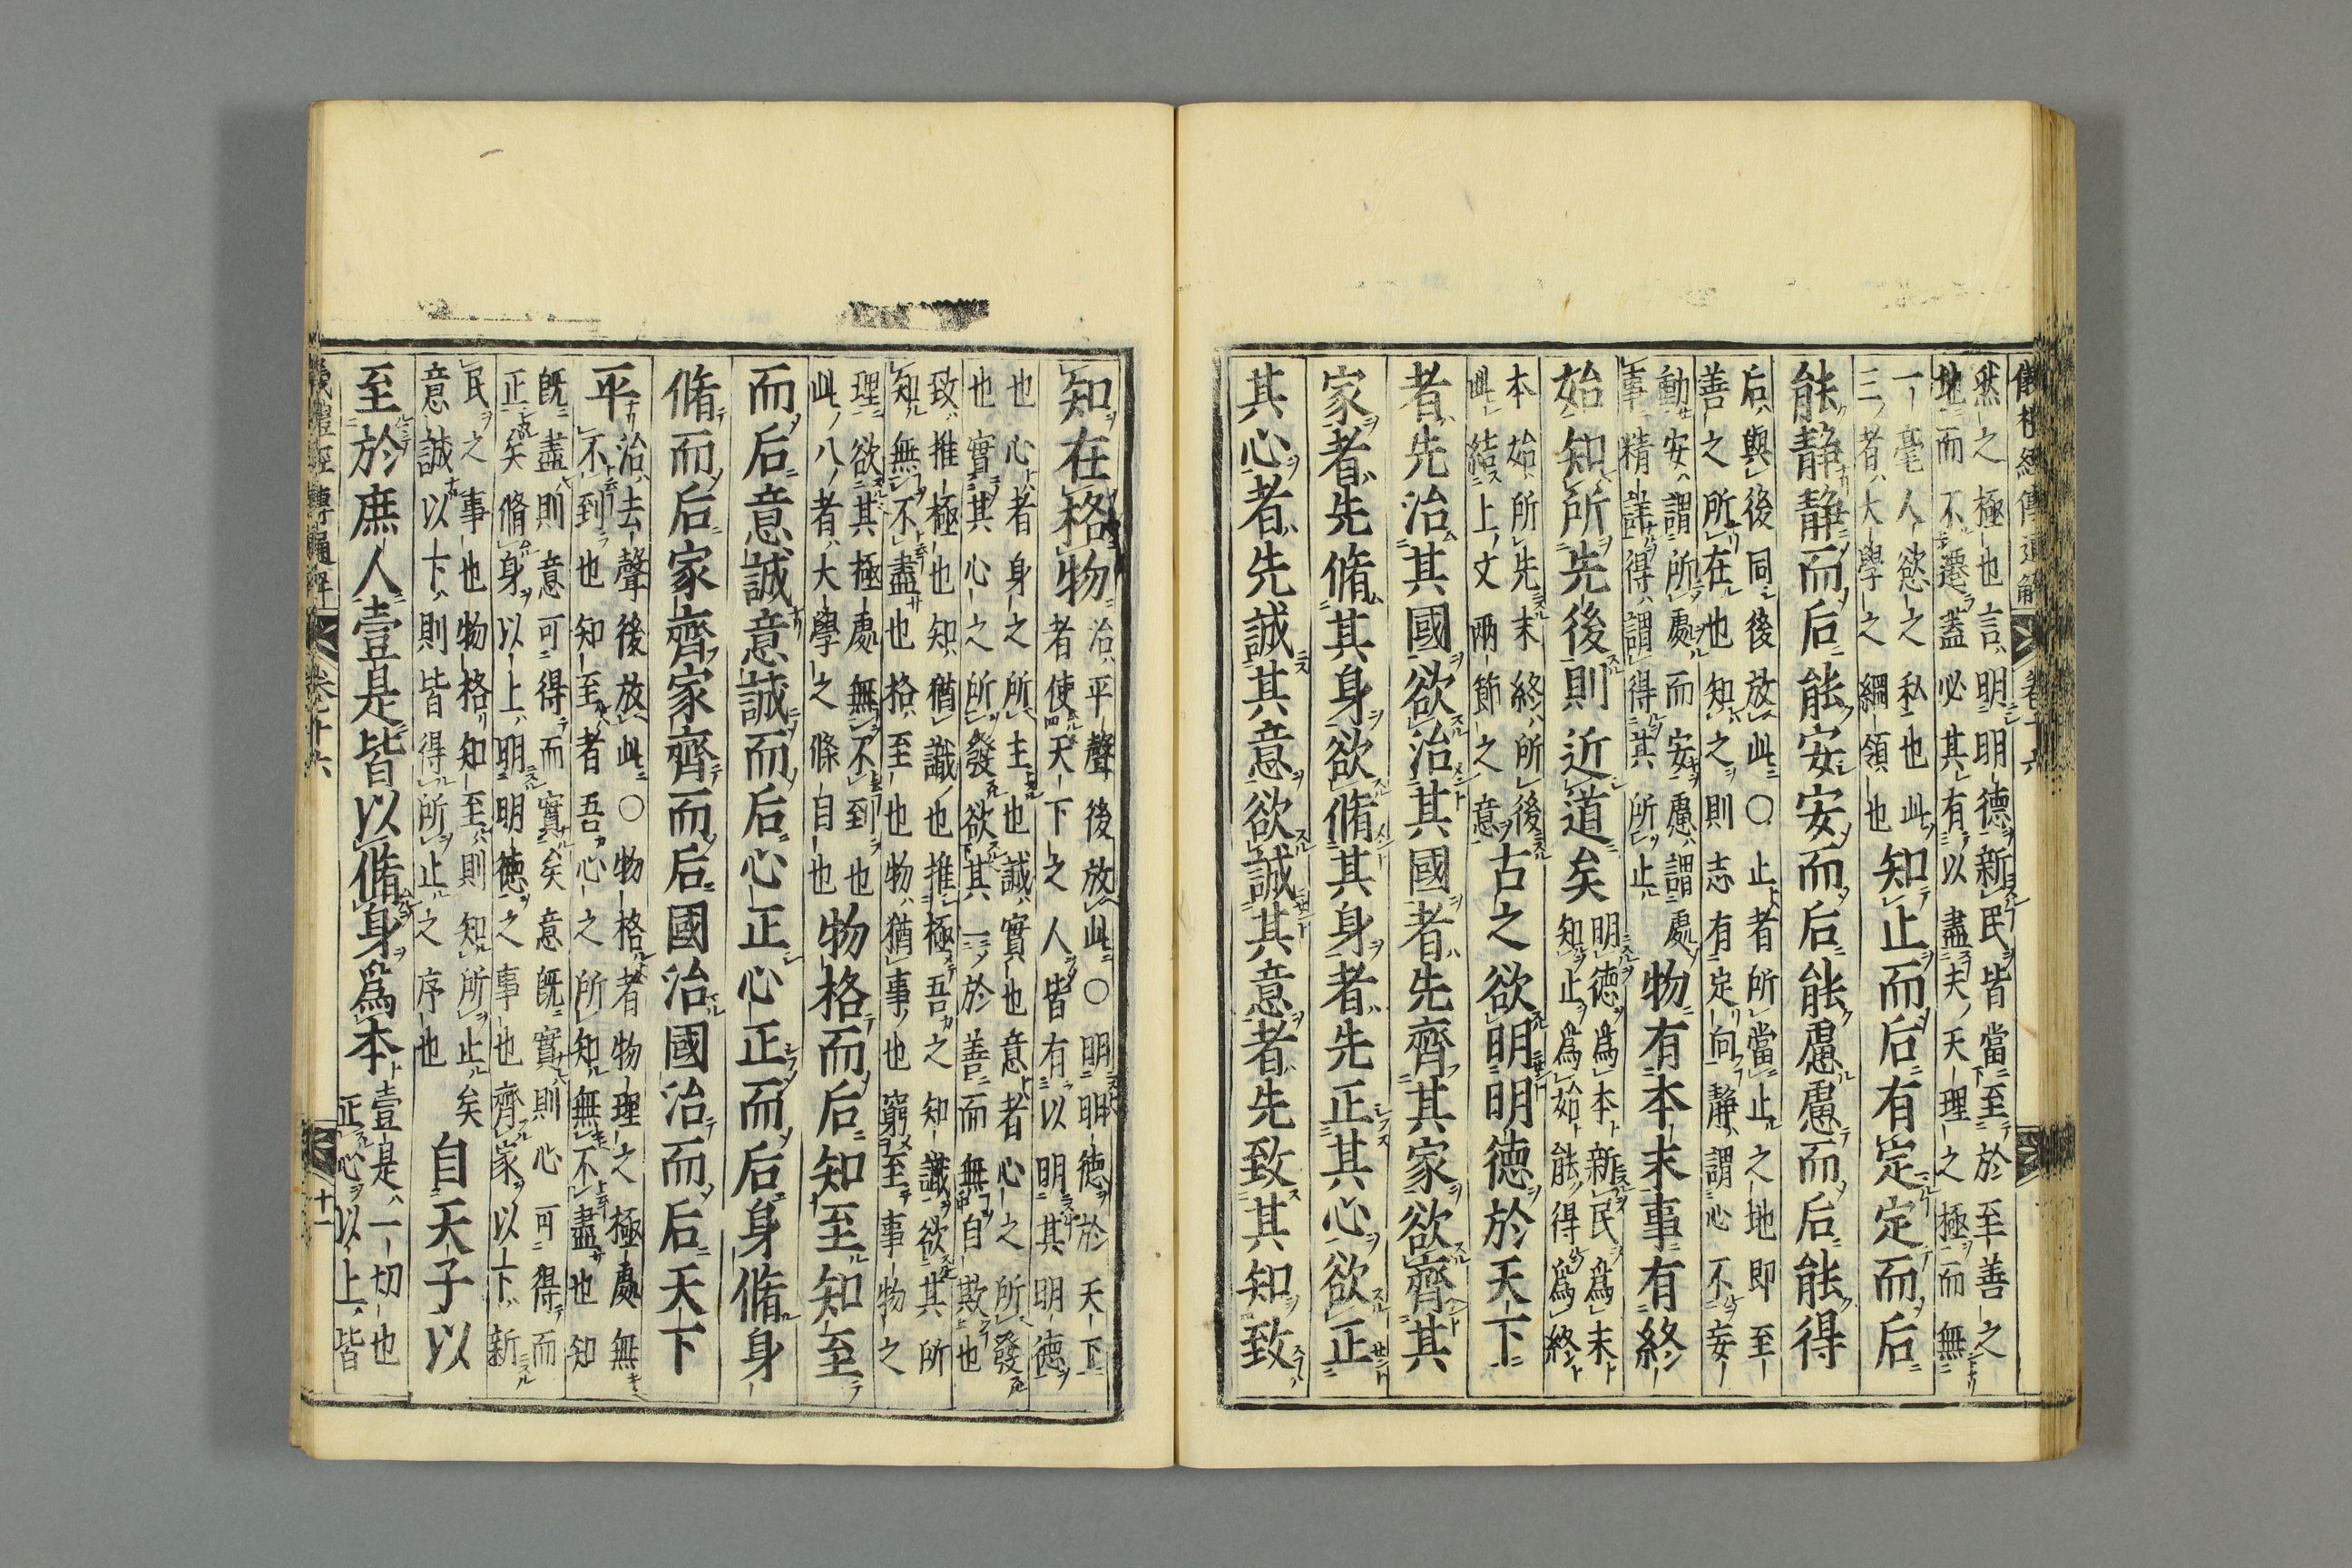 儀禮經傳通解　卷十六
然之極也言明明德新民皆當至於至善之
地而不遷蓋必其有以盡夫天理之極而無
一毫人慾之私也此
三者大學之綱領也
知止而后有定定而后
能靜靜而后能安安而后能慮慮而后能得
后與後同後放此〇止者所當止之地即至
善之所在也知之則志有定向靜謂心不妄
動安謂所處而安慮謂處
事精詳得謂得其所止
物有本末事有終
始知所先後則近道矣
明德爲本新民爲末
知止爲始能得爲終
本始所先末終所後
此結上文兩節之意
古之欲明明德於天下
者先治其國欲治其國者先齊其家欲齊其
家者先脩其身欲脩其身者先正其心欲正
其心者先誠其意欲誠其意者先致其知致
知在格物
治平聲後放此〇明明德於天下
者使天下之人皆有以明其明德
也心者身之所主也誠實也意者心之所發
也實其心之所發欲其一於善而無自欺也
致推極也知猶識也推極吾之知識欲其所
知無不盡也格至也物猶事也窮至事物之
理欲其極處無不到也
此八者大學之條自也
物格而后知至知至
而后意誠意誠而后心正心正而后身脩身
脩而后家齊家齊而后國治國治而后天下
平
治去聲後放此〇物格者物理之極處無
不到也知至者吾心之所知無不盡也知
既盡則意可得而實矣意既實則心可得而
正矣脩身以上明明德之事也齊家以下新
民之事也物格知至則知所止矣
意誠以下則皆得所止之序也
自天子以
至於庶人壹是皆以脩身爲本
壹是一切也
正心以上皆
儀禮經傳通解　卷十六　十一